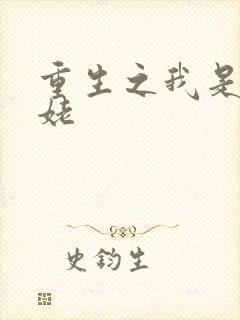 重生之我是
姥
史钧生